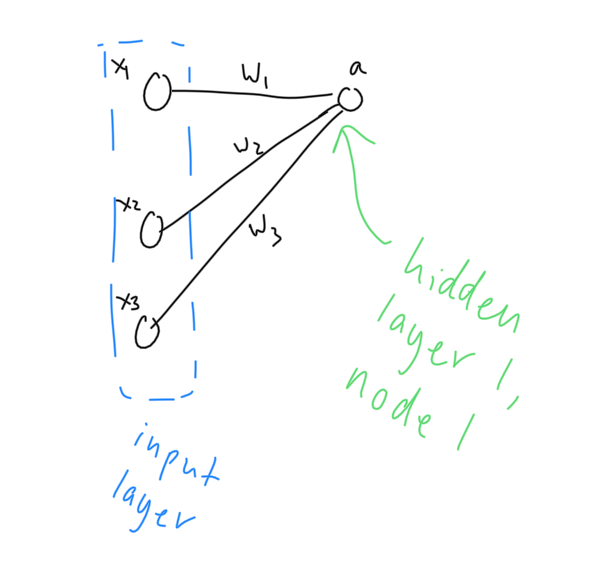 x1
W1
a
x2
W2
x3
W3
hidden
layer 1,
node 1
input
layer